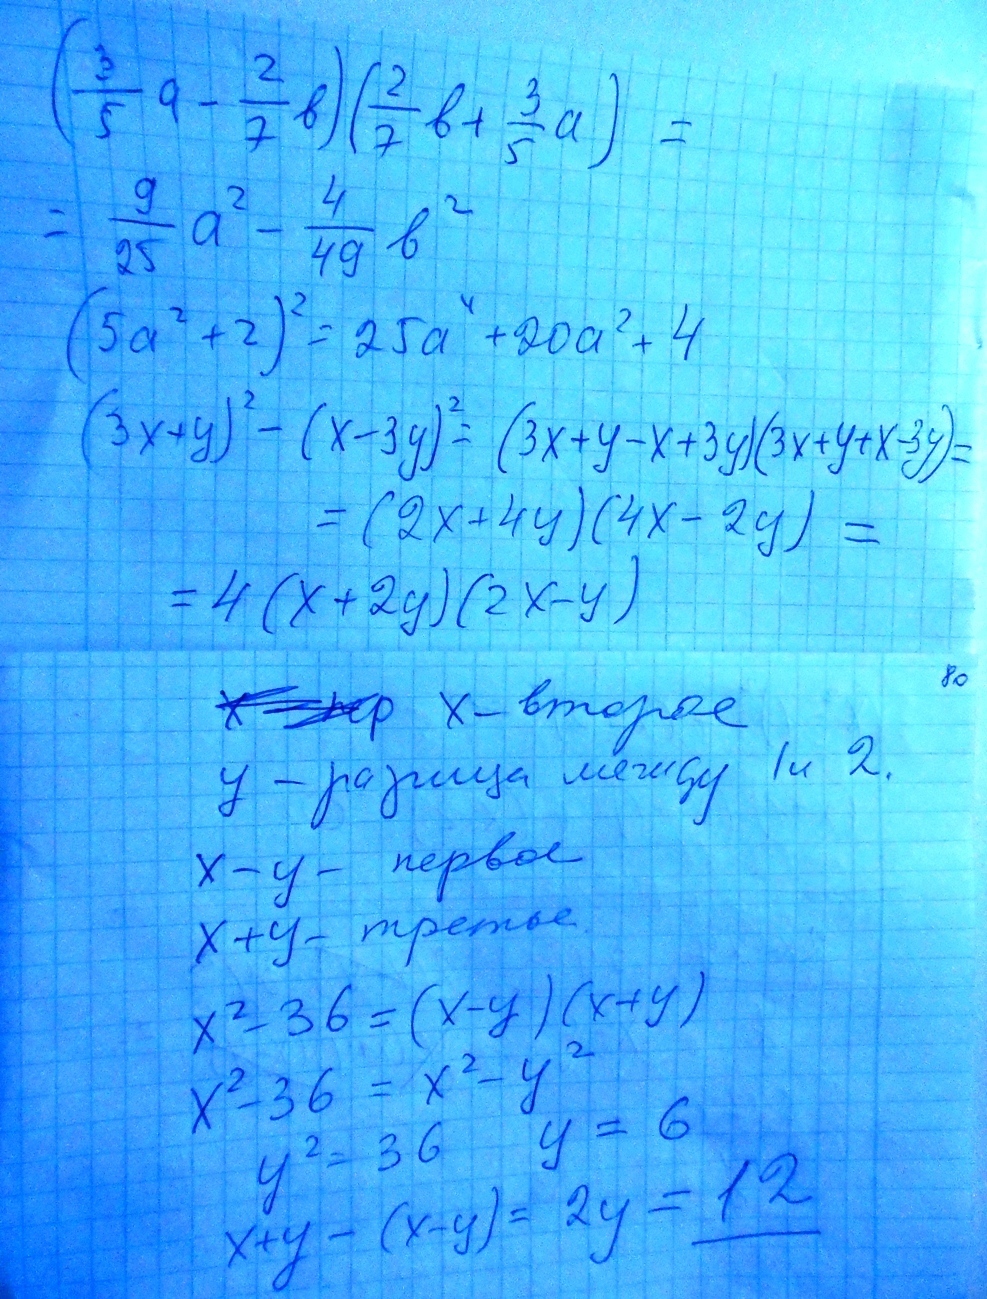 (3/5 a - 2/7 в)(2/7 в + 3/5 a) =
= 9/25 a² - 4/49 в²
(5a² + 2)² = 25a⁴ + 20a² + 4
(3x+y)² - (x-3y)² = (3x+y-x+3y)(3x+y+x-3y) =
= (2x+4y)(4x-2y) =
= 4(x+2y)(2x-y)
80
x - второе
y - разница между 1 и 2.
x-y - первое
x+y - третье
x² - 36 = (x-y)(x+y)
x² - 36 = x² - y²
y² = 36 y = 6
x+y - (x-y) = 2y = 12